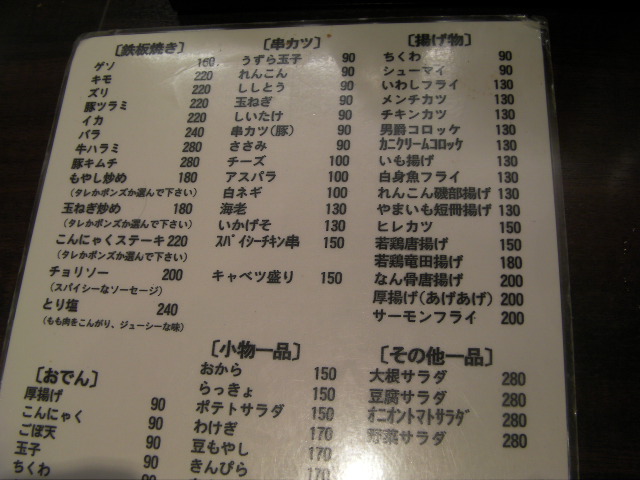 [鉄板焼き]
ゲソ 160
キモ 220
ズリ 220
豚ツラミ 220
イカ 220
バラ 240
牛ハラミ 280
豚キムチ 280
もやし炒め 180
(タレかポンズか選んで下さい)
玉ねぎ炒め 180
(タレかポンズか選んで下さい)
こんにゃくステーキ 220
(タレかポンズか選んで下さい)
チョリソー 200
(スパイシーなソーセージ)
とり塩 240
(もも肉をこんがり、ジューシーな味)
[串カツ]
うずら玉子 90
れんこん 90
ししとう 90
玉ねぎ 90
しいたけ 90
串カツ(豚) 90
ささみ 90
チーズ 100
アスパラ 100
白ネギ 100
海老 130
いかげそ 130
スパイシーチキン串 150
キャベツ盛り 150
[揚げ物]
ちくわ 90
シューマイ 90
いわしフライ 130
メンチカツ 130
チキンカツ 130
男爵コロッケ 130
カニクリームコロッケ 130
いも揚げ 130
白身魚フライ 130
れんこん磯部揚げ 130
やまいも短冊揚げ 130
ヒレカツ 150
若鶏唐揚げ 150
若鶏竜田揚げ 180
なん骨唐揚げ 200
厚揚げ(あげあげ) 200
サーモンフライ 200
[おでん]
厚揚げ 90
こんにゃく 90
ごぼ天 90
玉子 90
ちくわ 90
[小物一品]
おから 150
らっきょ 150
ポテトサラダ 150
わけぎ 170
豆もやし 170
きんぴら 170
[その他一品]
大根サラダ 280
豆腐サラダ 280
オニオントマトサラダ 280
野菜サラダ 280